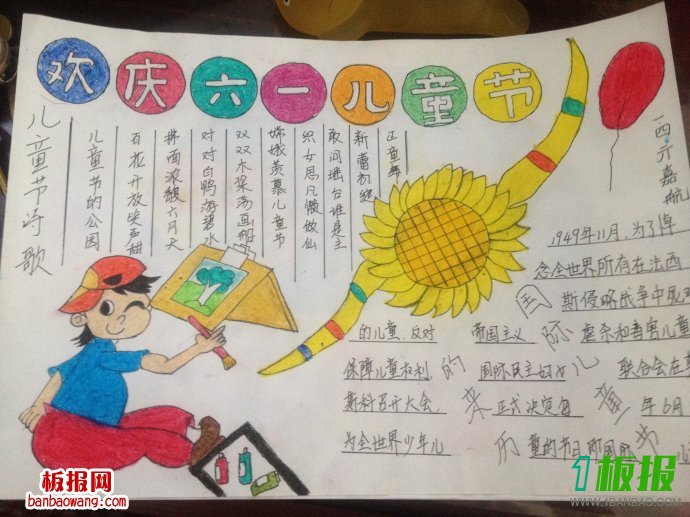 欢庆六一儿童节
儿童节诗歌
儿童节的公园
百花开放笑声甜
拂面浓馥六月天
对对白鸭游碧水
双双木桨荡画船
嫦娥羡慕儿童节
织女思凡懒做仙
敢问瑶台谁是主
新蕾初绽
正童年
一四 亓嘉航
国际儿童节的来历
1949年11月，为了悼
念全世界所有在法西
斯侵略战争中死
的儿童，反对 帝国主义 虐杀和毒害儿童
保障儿童权利， 国际民主妇女 联合会在
斯科召开大会， 正式决定每 年6月
为全世界少年儿 童的节日，即国际
板报网
banbaowang.com
1板报
WWW.1BANBAO.COM